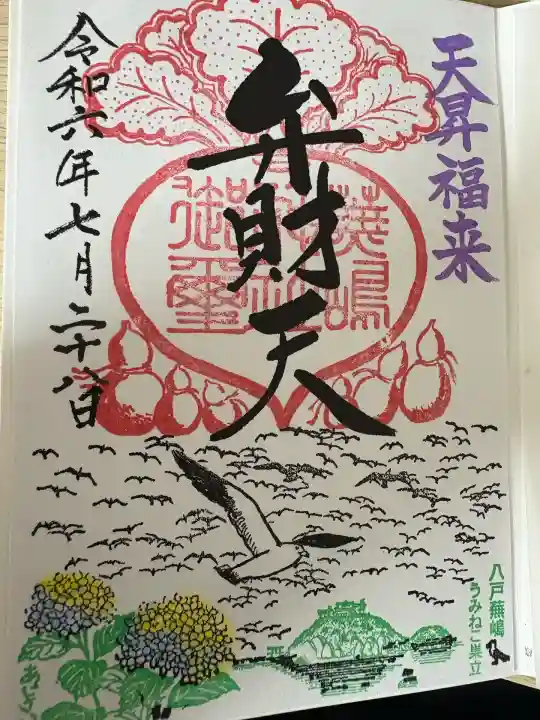 天昇福来
弁財天
蕪嶋
神社
御璽
令和六年七月二十八日
八戸蕪嶋
うみねこ巣立